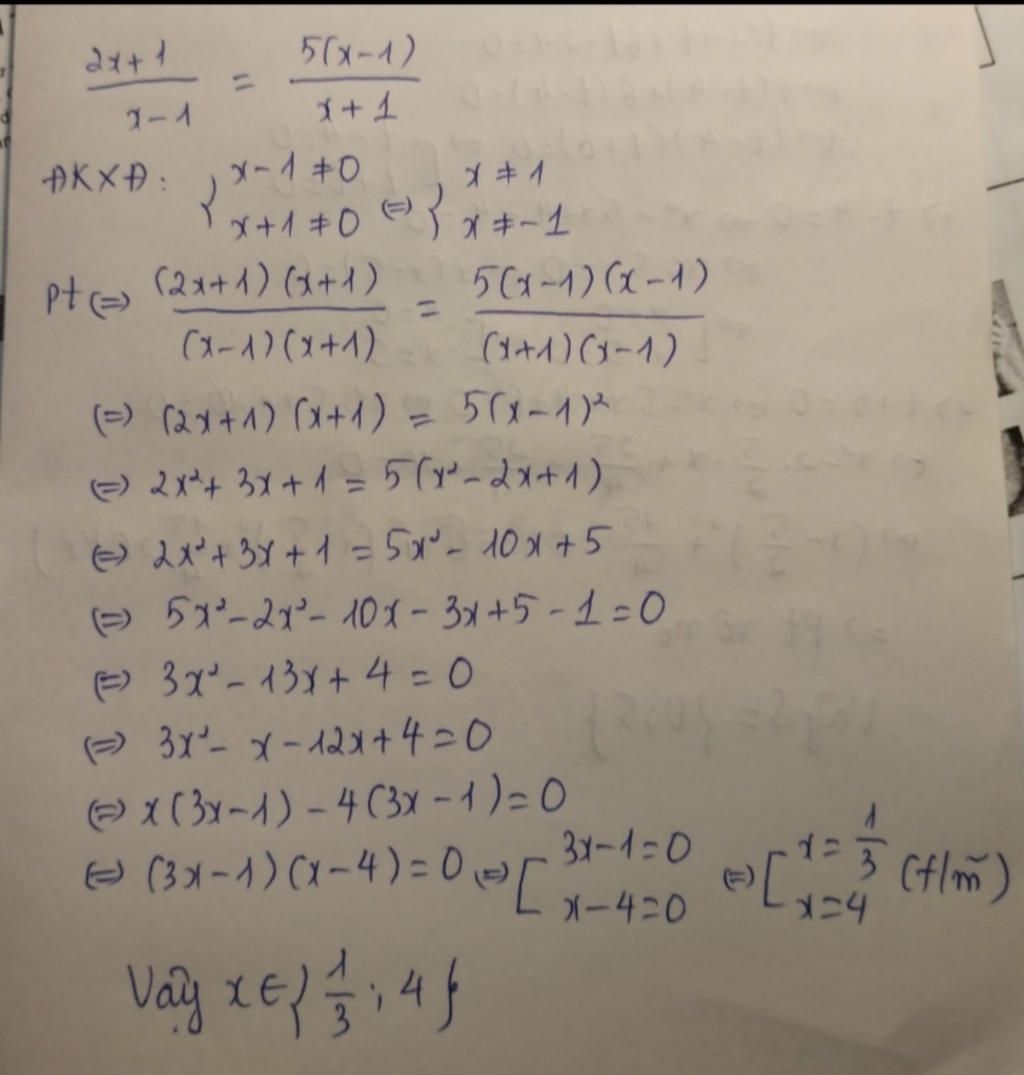 2x+1 / x-1 = 5(x-1) / x+1
ĐKXĐ: { x-1≠0 ; x+1≠0 ⇔ { x≠1 ; x≠-1
pt ⇔ (2x+1)(x+1) / (x-1)(x+1) = 5(x-1)(x-1) / (x+1)(x-1)
⇔ (2x+1)(x+1) = 5(x-1)²
⇔ 2x²+3x+1 = 5(x²-2x+1)
⇔ 2x²+3x+1 = 5x²-10x+5
⇔ 5x²-2x²-10x-3x+5-1=0
⇔ 3x²-13x+4=0
⇔ 3x²-x-12x+4=0
⇔ x(3x-1)-4(3x-1)=0
⇔ (3x-1)(x-4)=0 ⇔ [ 3x-1=0 ; x-4=0 ⇔ [ x=1/3 ; x=4 (t/m)
Vậy x∈{1/3; 4}